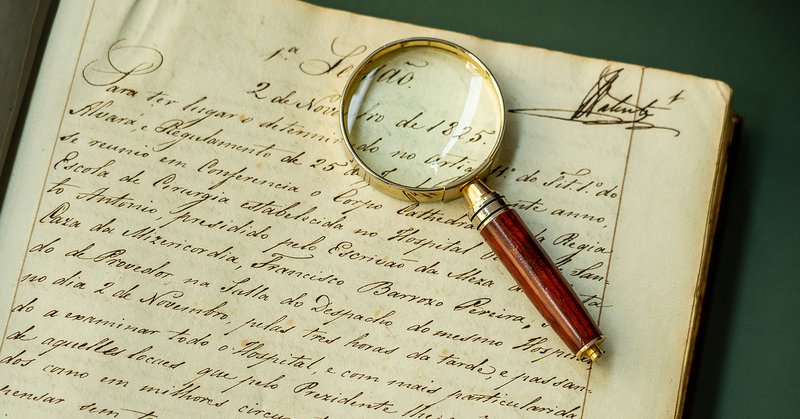 1.ª Sessão.
2 de Novembro de 1825
Para ter lugar o determinado no artigo 11.º do Tit.º 1.º do
Alvara, e Regulamento de 25 de corrente anno,
se reunio em Conferencia o Corpo Cathedratico da Regia
Escola de Cirurgia estabelecida no Hospital de San-
to Antonio, presidido pelo Escrivão da Meza da Santa
Caza da Misericordia, Francisco Barrozo Pereira, 
do de Provedor na Salla do Despacho do mesmo Hospital
no dia 2 de Novembro, pelas tres horas da tarde, e passan-
do a examinar todo o Hospital, e com mais particularida
de aquelles locaes que pelo Prezidente lhe
dos como em milhores circu
pensar sem